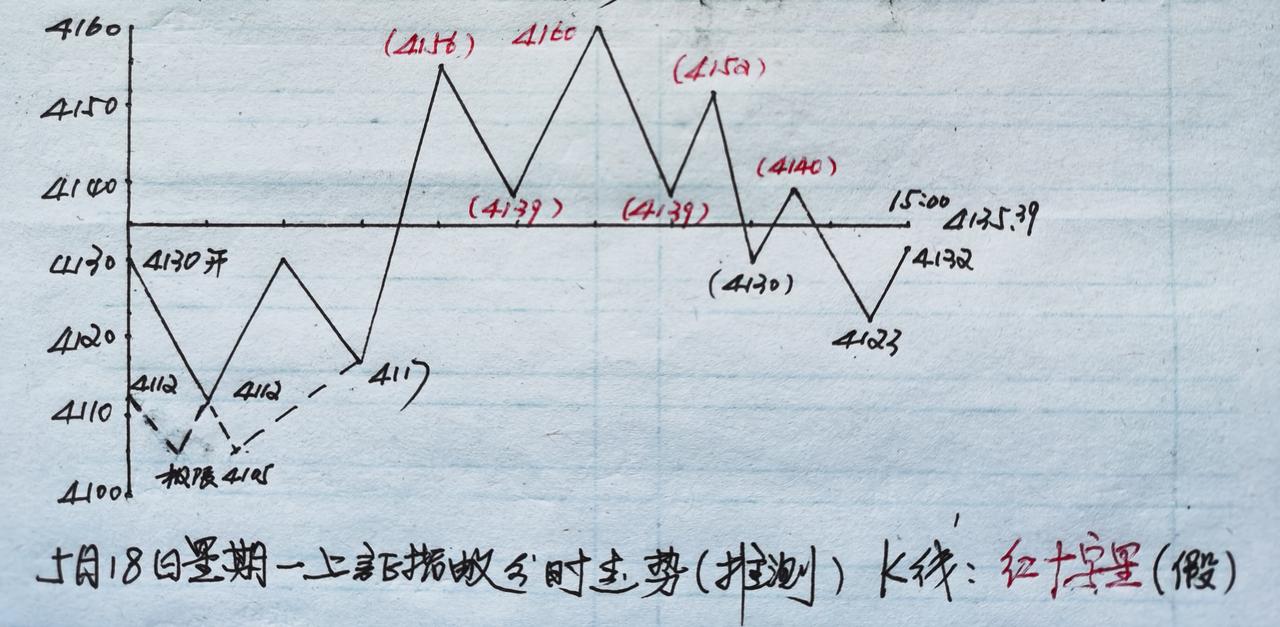 4160
(4156)
4160
(4152)
4150
(4140)
4140
(4139)
(4139)
15:00
4135.39
4130
4130开
4132
(4130)
4120
4123
4112
4112
4117
4110
极限4105
4100
5月18日星期一上証指数分时走势(推测) K线:红十字星(假)